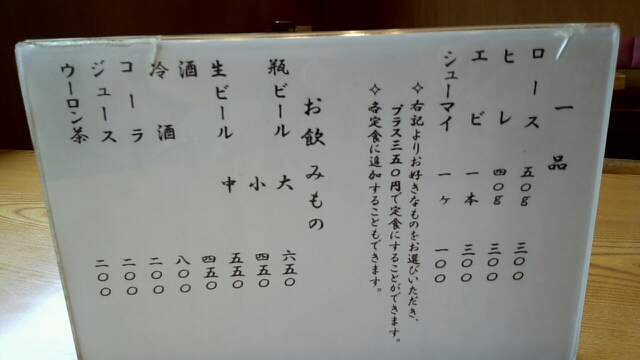 一品
ロース 五〇g 三〇〇
ヒレ 四〇g 三〇〇
エビ 一本 三〇〇
シューマイ 一ヶ 一〇〇
✧右記よりお好きなものをお選びいただき、
プラス三五〇円で定食にすることができます。
✧各定食に追加することもできます。
お飲みもの
瓶ビール 大 六五〇
小 四五〇
生ビール 中 五五〇
酒 四五〇
冷酒 八〇〇
コーラ 二〇〇
ジュース 二〇〇
ウーロン茶 二〇〇